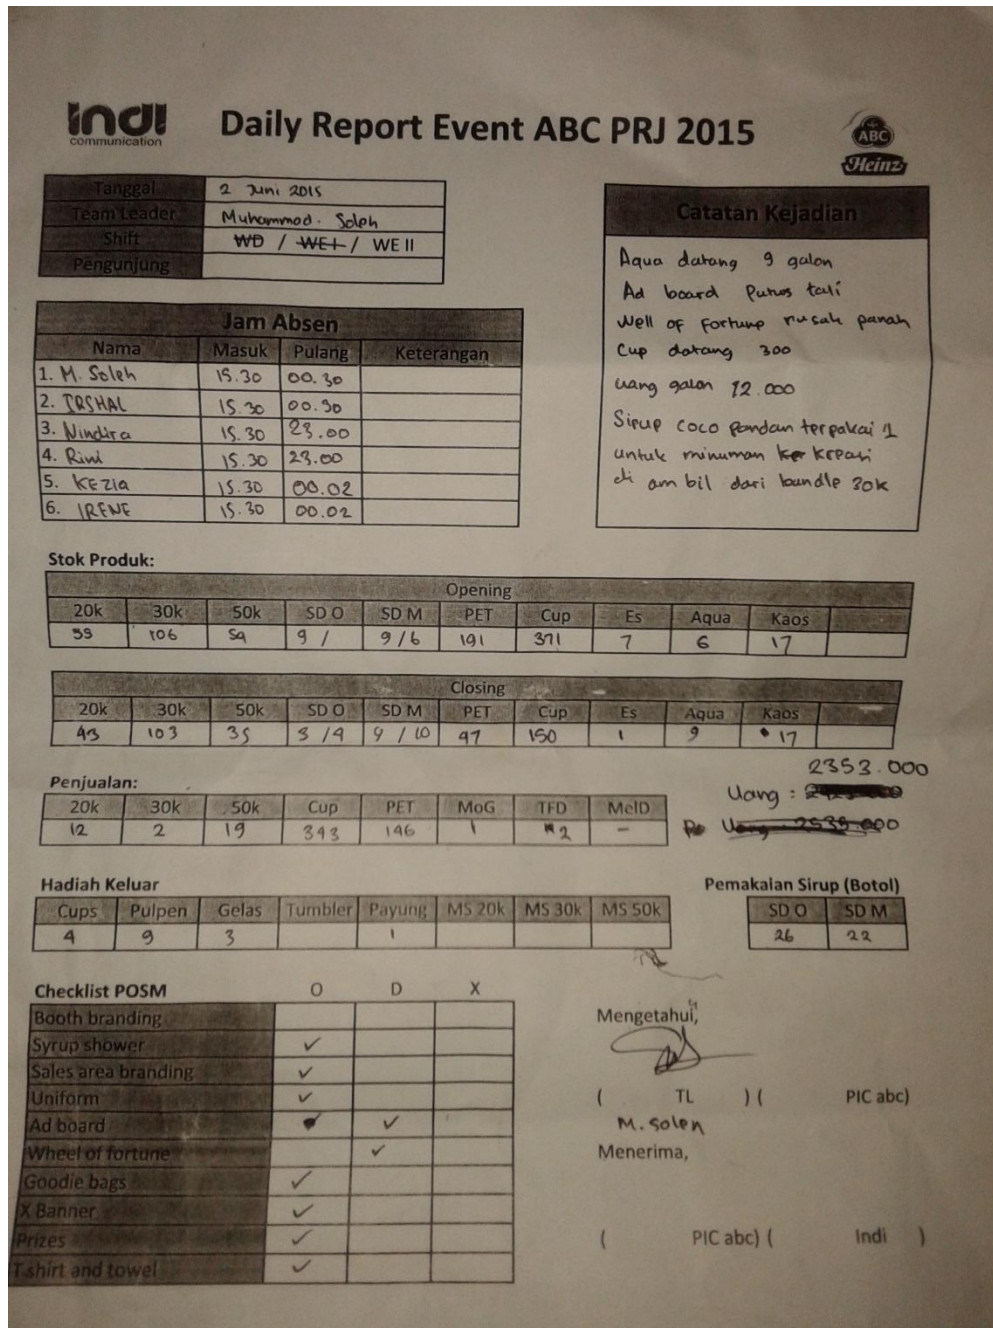 indi
communication
Daily Report Event ABC PRJ 2015
ABC
Heinz
Tanggal 2 Juni 2015
Team Leader Muhammad. Soleh
Shift WD / WE I / WE II
Pengunjung
Catatan Kejadian
Aqua datang 9 galon
Ad board Putus tali
Well of fortune rusak panah
Cup datang 300
uang galon 12.000
Sirup coco pandan terpakai 1
untuk minuman kreasi
di ambil dari bundle 30k
Jam Absen
Nama Masuk Pulang Keterangan
1. M. Soleh 15.30 00.30
2. IRSHAL 15.30 00.30
3. Nindira 15.30 23.00
4. Rini 15.30 23.00
5. KEZIA 15.30 00.02
6. IRENE 15.30 00.02
Stok Produk:
Opening
20k 30k 50k SD O SD M PET Cup Es Aqua Kaos
106 9 / 9 / 6 191 371 7 6 17
Closing
20k 30k 50k SD O SD M PET Cup Es Aqua Kaos
43 103 35 3 / 9 9 / 10 97 150 1 9 17
2353.000
Penjualan:
Uang :
20k 30k 50k Cup PET MoG TFD MelD
12 2 19 343 146 1 2 -
Hadiah Keluar
Cups Pulpen Gelas Tumbler Payung MS 20k MS 30k MS 50k
4 9 3 1
Pemakaian Sirup (Botol)
SD O SD M
26 22
Checklist POSM O D X
Booth branding
Syrup shower ✓
Sales area branding ✓
Uniform ✓
Ad board ✓
Wheel of fortune ✓
Goodie bags ✓
X Banner ✓
Prizes ✓
T-shirt and towel ✓
Mengetahui,
( TL ) ( PIC abc)
M. Soleh
Menerima,
( PIC abc) ( Indi )